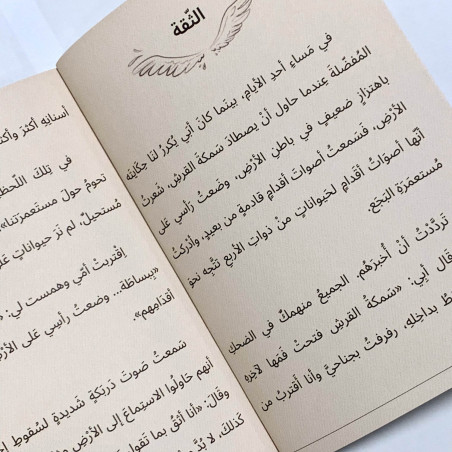 الثِّقة
في مَساءِ أحدِ الأيامِ، بينَما كانَ أبي يُكرِّرُ لَنا حِكايَتَه
المُفضّلةَ عِندما حاول أنْ يصطادَ سَمكةَ القرشِ، شَعرتُ
باهتزازٍ ضعيفٍ في باطنِ الأرضِ، وضَعتُ رأسِي عَلى
الأرْضِ، فسَمعتُ أصواتَ أقدامٍ قادمةٍ من بعيدٍ، وأدْركتُ
أنَّها أصواتُ أقدامٍ لحَيواناتٍ منْ ذواتِ الأربعِ تتَّجِه نحوَ
مُستعمَرَةِ البَجَعِ.
تَردَّدْتُ أنْ أُخبرَهُم، الجميعُ منهمكٌ في الضحكِ
قالَ أبِي: «سَمكةُ القرشِ فتحتْ فَمَها لآخِرهِ
بداخِلِهِ، رفرفتُ بجناحيَّ وأنا أقتَربُ من
أسنانِهِ أكثرَ وأكثَ
في تِلكَ اللّحظ
تحومُ حولَ مستَعمرَتنا»
مُستحيلٌ، لم نَرَ حيواناتٍ
اِقتربتْ أمِّي وهمست لي: «
«ببساطَة.. وضعتُ رأسِي عَلى الأرْ
أقدَامِهم».
سَمعتُ صَوتَ دَربَكةٍ شَديدةٍ لسُقوطِ
أنهم حَاولُوا الاستِماعَ إلى الأرضِ
وقَالَ: «أنا أثقُ بما تَقولَ
كذلكَ، لا بُدَّ